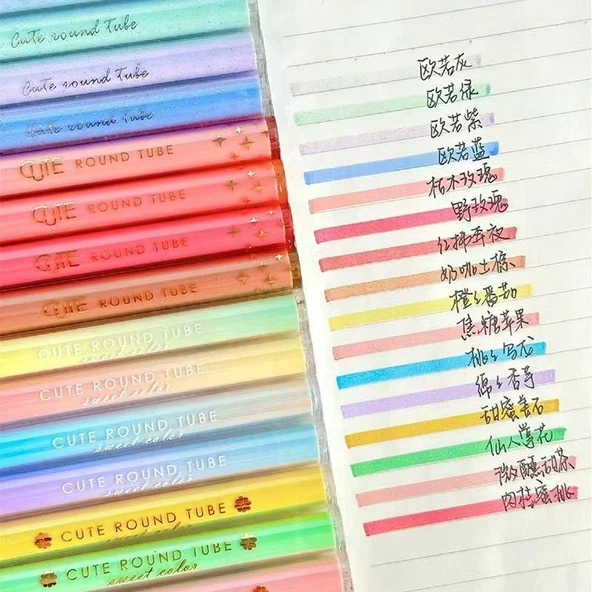 Cute round Tube
Cute round Tube
Cute round Tube
CUTE ROUND TUBE
CUTE ROUND TUBE
CUTE ROUND TUBE
CUTE ROUND TUBE
CUTE ROUND TUBE
sweet color
CUTE ROUND TUBE
sweet color
CUTE ROUND TUBE
sweet color
CUTE ROUND TUBE
sweet color
CUTE ROUND TUBE
sweet color
CUTE ROUND TUBE
sweet color
欧若灰
欧若绿
欧若紫
欧若蓝
枯木玫瑰
野玫瑰
红拂弄夜
奶咖土棕
橙色番茄
焦糖苹果
桃乌龙
绵香芋
甜蜜宝石
仙人掌花
微醺甜茶
肉桂蜜桃